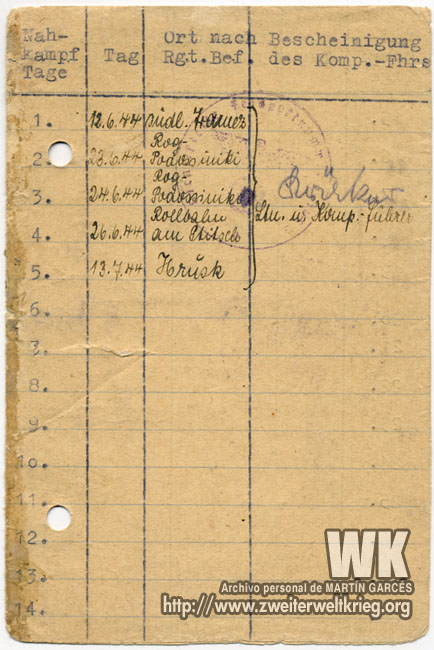 Nah-
kampf
Tage
Tag
Ort nach
Rgt.Bef.
Bescheinigung
des Komp.-Fhrs
1. 12.6.44 südl.
Rog
2. 23.6.44 Podossiniki
Rog
3. 24.6.44 Podossiniki
Rollbahn Ltn. u. Komp.-führer
4. 26.6.44 am
5. 13.7.44 Hrusk
6.
7.
8.
9.
10.
11.
12.
13.
14.
WK
Archivo personal de MARTÍN GARCÉS
http://www.zweiterweltkrieg.org